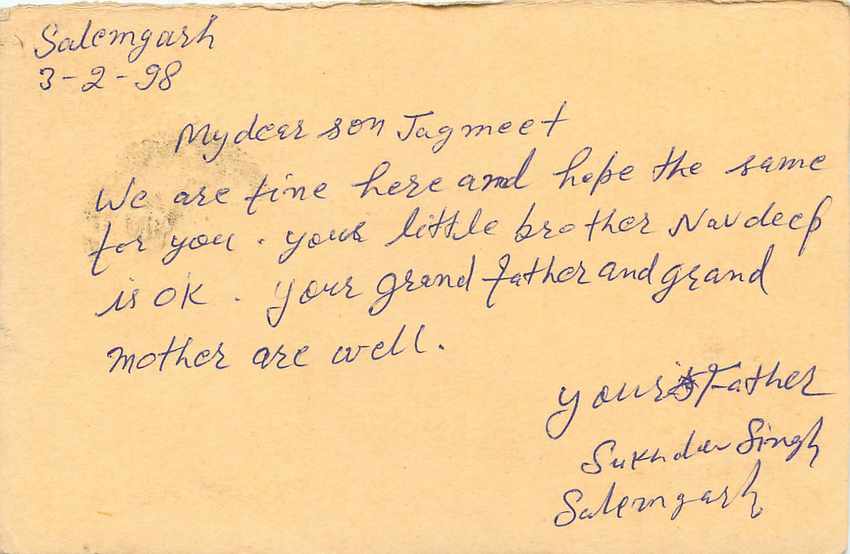 Salemgarh
3-2-98
My dear son Jagmeet
We are fine here and hope the same
for you. your little brother Navdeep
is OK. Your grand father and grand
mother are well.
Your's Father
Sukhdev Singh
Salemgarh